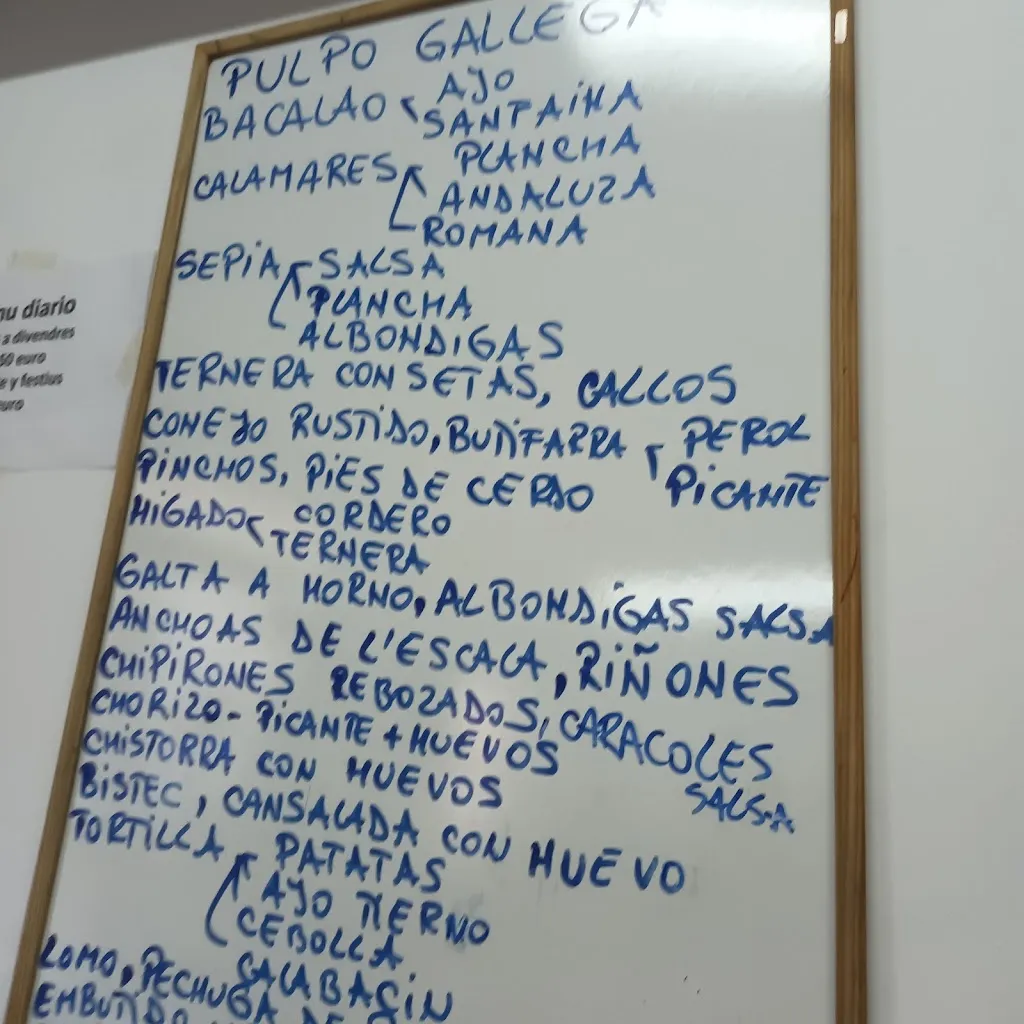 PULPO GALLEGA
BACALAO AJO
SANFAINA
CALAMARES PLANCHA
ANDALUZA
ROMANA
SEPIA SALSA
PLANCHA
ALBONDIGAS
TERNERA CON SETAS, CALLOS
CONEJO RUSTIDO, BUTIFARRA PEROL
PICANTE
PINCHOS, PIES DE CERDO
HIGADO CORDERO
TERNERA
GALTA A HORNO, ALBONDIGAS SALSA
ANCHOAS DE L'ESCALA, RIÑONES
CHIPIRONES REBOZADOS, CARACOLES
SALSA
CHORIZO - PICANTE + HUEVOS
CHISTORRA CON HUEVOS
BISTEC, CANSALADA CON HUEVO
TORTILLA PATATAS
AJO TIERNO
CEBOLLA
CALABACIN
LOMO, PECHUGA DE
EMBUTIDO
nu diario
a divendres
50 euro
e y festius
euro